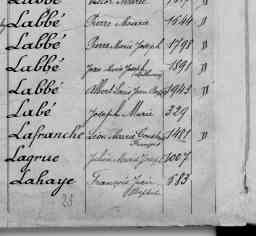 Labbé Pierre Marie 1544 D
Labbé Pierre Marie Joseph 1798 D
Labbé Jean Marie Joseph 1891 D
Labbé Albert Louis Jean 1943 D
Labé Joseph Marie 329
Lafranche Léon Marie 1481 D
François
Lagrue Julien Marie Joseph 1007
Lahaye François Jean 583